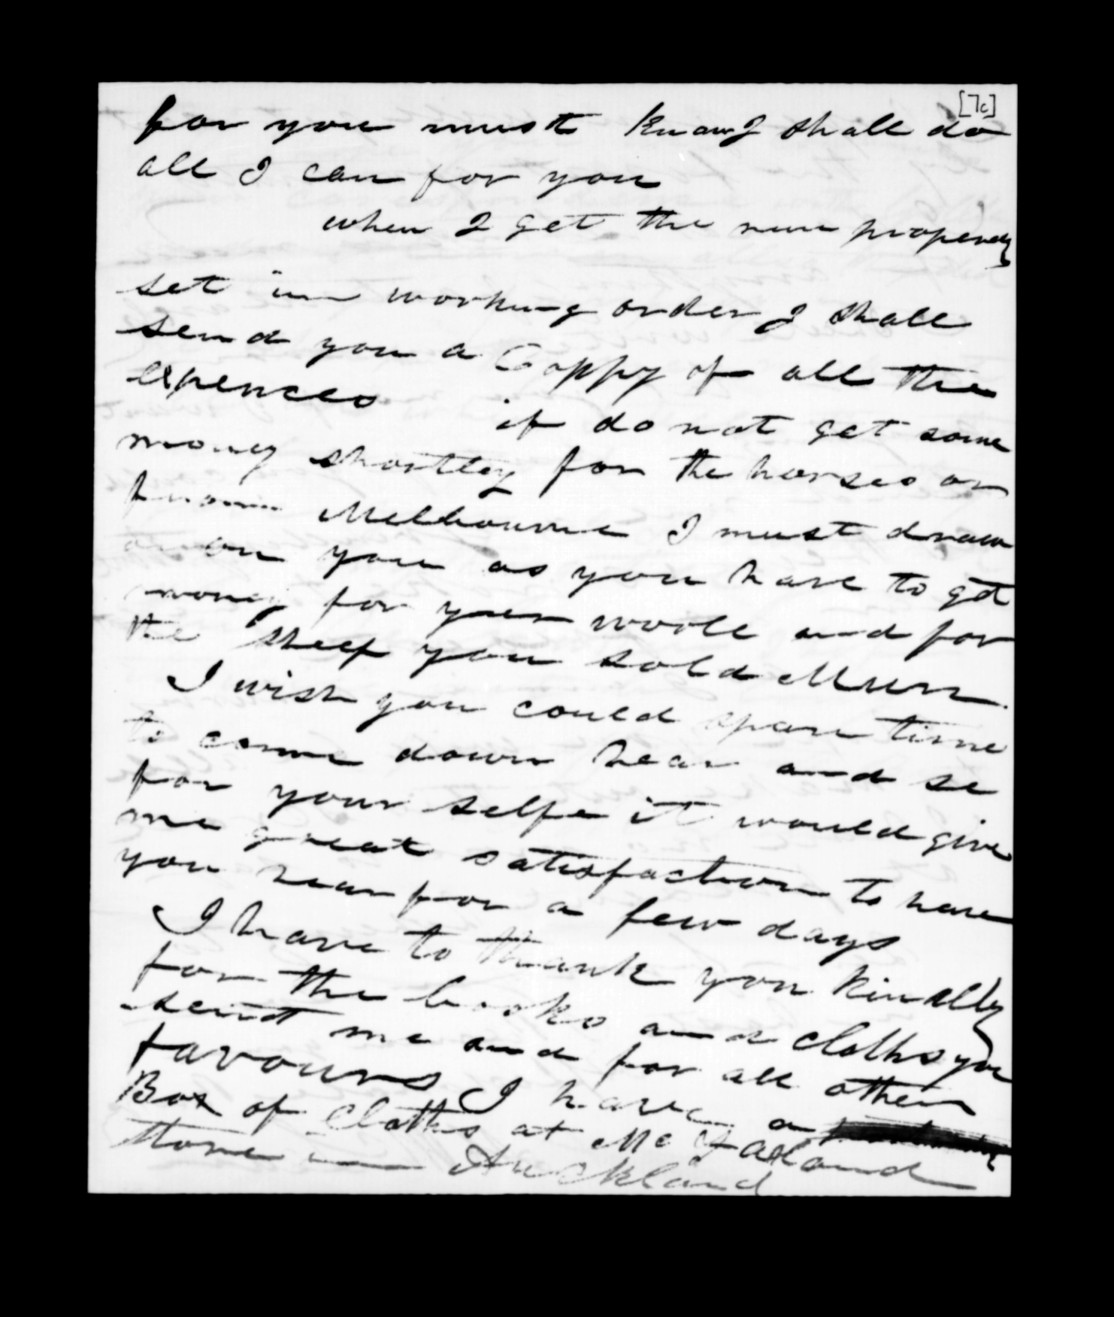 [7c]
for you must know I shall do
all I can for you
when I get the new property
set in working order I shall
send you a Coppy of all the
expences if do not get some
money shortley for the horses or
from Melbourne I must draw
on you as you have to get
money for your woole and for
the sheep you sold Murr
I wish you could spare time
to come down hear and se
for your selfe it would give
me great satisfaction to have
you hear for a few days
I have to thank you kindly
for the books and cloths you
sent me and for all other
favours I have a
Box of Cloths at Mc Farland
Stone in Auckland